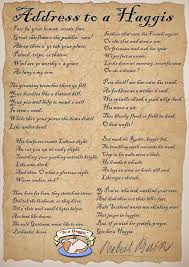 Address to a Haggis
Fair fa your honest, sonsie face,
Great chieftain o the puddin'-race!
Aboon them a' ye tak your place,
Painch, tripe, or thairm:
Weel are ye wordy o' a grace
As lang's my arm.
The groaning trencher there ye fill,
Your hurdies like a distant hill,
Your pin wad help to mend a mill
In time o need,
While thro your pores the dews distil
Like amber bead.
His knife see rustic Labour dight,
An cut you up wi ready slight,
Trenching your gushing entrails bright,
Like onie ditch;
And then, O what a glorious sight,
Warm-reekin, rich!
Then, horn for horn, they stretch an strive:
Deil tak the hindmost, on they drive,
Till a' their weel-swall'd kytes belyve
Are bent like drums;
The auld Guidman, maist like to rive,
'Bethankit' hums.
Is there that owre his French ragout,
Or olio that wad staw a sow,
Or fricassee wad mak her spew
Wi perfect scunner,
Looks down wi sneering, scornfu view
On sic a dinner?
Poor devil! see him owre his trash,
As feckless as a wither'd rash,
His spindle shank a guid whip-lash,
His nieve a nit:
Thro bloody flood or field to dash,
O how unfit!
But mark the Rustic, haggis-fed,
The trembling earth resounds his tread,
Clap in his walie nieve a blade,
He'll make it whissle;
An legs an arms, an heads will sned,
Like taps o thrissle.
Ye Pow'rs, wha mak mankind your care,
And dish them out their bill o fare,
Auld Scotland wants nae skinking ware
That jaups in luggies:
But, if ye wish her gratefu prayer,
Gie her a Haggis
To a Haggis
Robert Burns